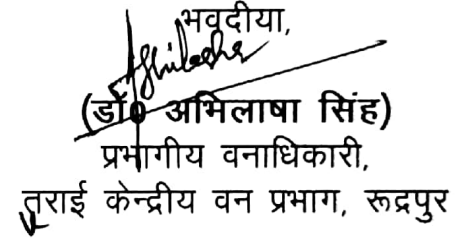 भवदीया,
Abhilasha
(डॉ० अभिलाषा सिंह)
प्रभागीय वनाधिकारी,
तराई केन्द्रीय वन प्रभाग, रूद्रपुर